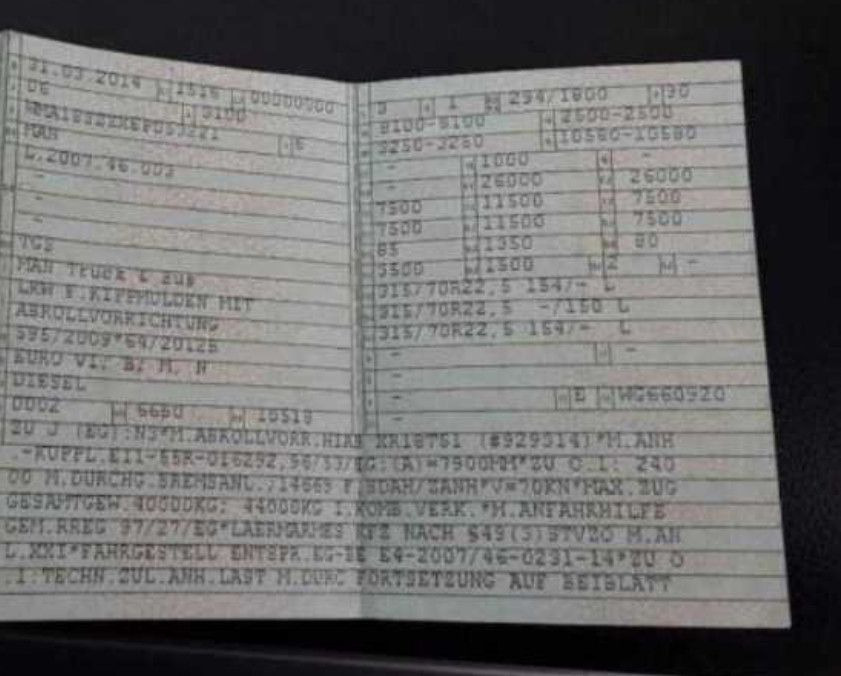 31.03.2014 1516 00000000
06 9100
MAN
L.2007.46.003
-
-
-
TGS
MAN TRUCK & BUS
LKW F.KIPPMULDEN MIT
ABROLLVORRICHTUNG
595/2009*64/2012B
EURO VI; B; M, N
DIESEL
0002 6650 10518
3 1 294/1800 90
8100-8100 2500-2500
3250-3250 10580-10580
- 1000 -
- 26000 26000
7500 11500 7500
7500 11500 7500
85 1350 80
3500 1500 2 -
315/70R22,5 154/- L
315/70R22,5 -/150 L
315/70R22,5 154/- L
- -
-
- E WG660920
-
ZU J (EG):N3*M.ABROLLVORR.HIAB XR18T51 (#929314)*M.ANH
.-KUPPL.E11-55R-016292, (A)=7900MM*ZU O.1: 240
00 M.DURCHG.BREMSANL./14665 *V=70KN*MAX.ZUG
GESAMTGEW.40000KG; 44000KG I.KOMB.VERK.*M.ANFAHRHILFE
GEM.RREG 97/27/EG*LAERMARMES KFZ NACH §49(3)STVZO M.AN
L.XXI*FAHRGESTELL ENTSPR.EG-BE E4-2007/46-0231-14*ZU O
.1:TECHN.ZUL.ANH.LAST M.DURC FORTSETZUNG AUF BEIBLATT